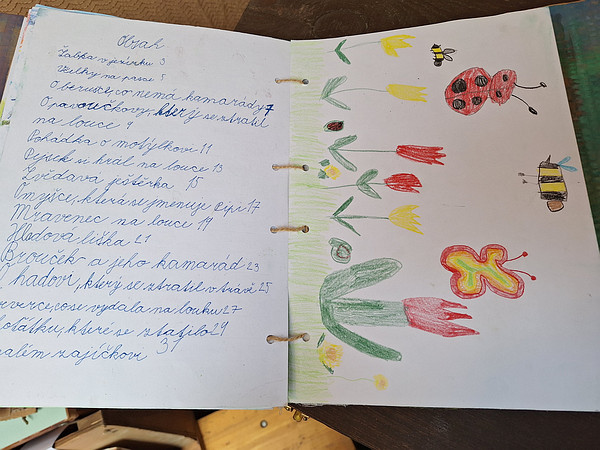 Obsah
Žabka v jezírku 3
Včelky na pase 5
O berušce, co nemá kamarády 7
O pavoučkovi, který se ztratil
na louce 9
Pohádka o motýlkovi 11
Pejsek si hrál na louce 13
Zvědavá ještěrka 15
O myšce, která se jmenuje Pipi 17
Mravenec na louce 19
Hladová liška 21
Brouček a jeho kamarád 23
hadovi, který se ztratil v trávě 25
se vydala na louku 27
koťátku, které se ztratilo 29
malém zajíčkovi 31